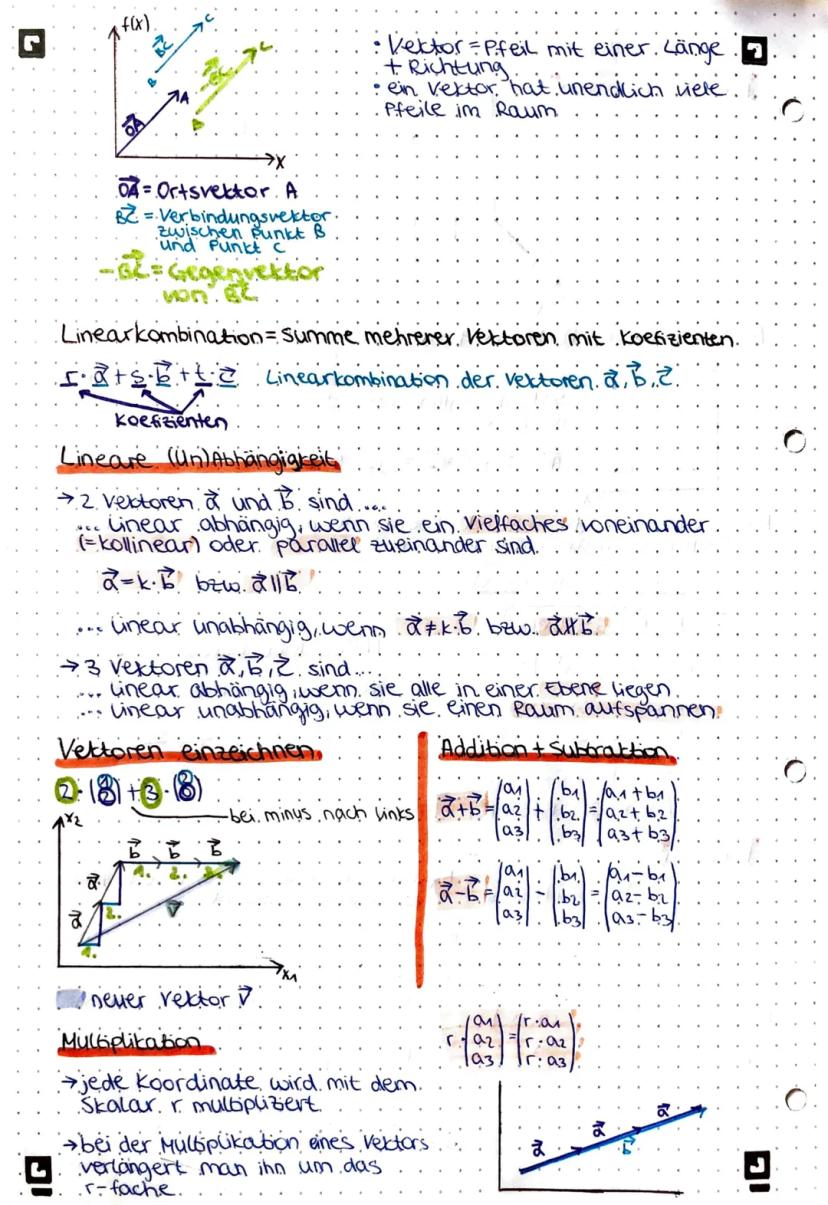 f(x)
C
BC
B
C
-BC
B
A
OA
x
• Vektor = Pfeil mit einer Länge
+ Richtung
• ein Vektor hat unendlich viele
Pfeile im Raum
OA = Ortsvektor A
BC = Verbindungsvektor
zwischen Punkt B
und Punkt C
-BC = Gegenvektor
von BC
Linearkombination = Summe mehrerer Vektoren mit Koefizienten.
r · a⃗ + s · b⃗ + t · c⃗ Linearkombination der Vektoren a⃗, b⃗, c⃗.
Koefizienten
Lineare (Un)Abhängigkeit
→ 2 Vektoren a⃗ und b⃗ sind ...
... linear abhängig, wenn sie ein Vielfaches voneinander
(= kollinear) oder parallel zueinander sind.
a⃗ = k · b⃗ bzw. a⃗ ∥ b⃗
... linear unabhängig, wenn a⃗ ≠ k · b⃗ bzw. a⃗ ∦ b⃗
→ 3 Vektoren a⃗, b⃗, c⃗ sind ...
... linear abhängig, wenn sie alle in einer Ebene liegen
... linear unabhängig, wenn sie einen Raum aufspannen.
Vektoren einzeichnen
bei minus nach links
x2
b⃗ b⃗ b⃗
1. 2. 3.
a⃗
2.
a⃗
v⃗
1.
x1
neuer Vektor v⃗
Addition + Subtraktion
a⃗ + b⃗ = (a1 a2 a3) + (b1 b2 b3) = (a1 + b1 a2 + b2 a3 + b3)
a⃗ - b⃗ = (a1 a2 a3) - (b1 b2 b3) = (a1 - b1 a2 - b2 a3 - b3)
Multiplikation
→ jede Koordinate wird mit dem
Skalar r multipliziert
→ bei der Multiplikation eines Vektors
verlängert man ihn um das
r-fache
r · (a1 a2 a3) = (r · a1 r · a2 r · a3)
a⃗ a⃗ a⃗
b⃗